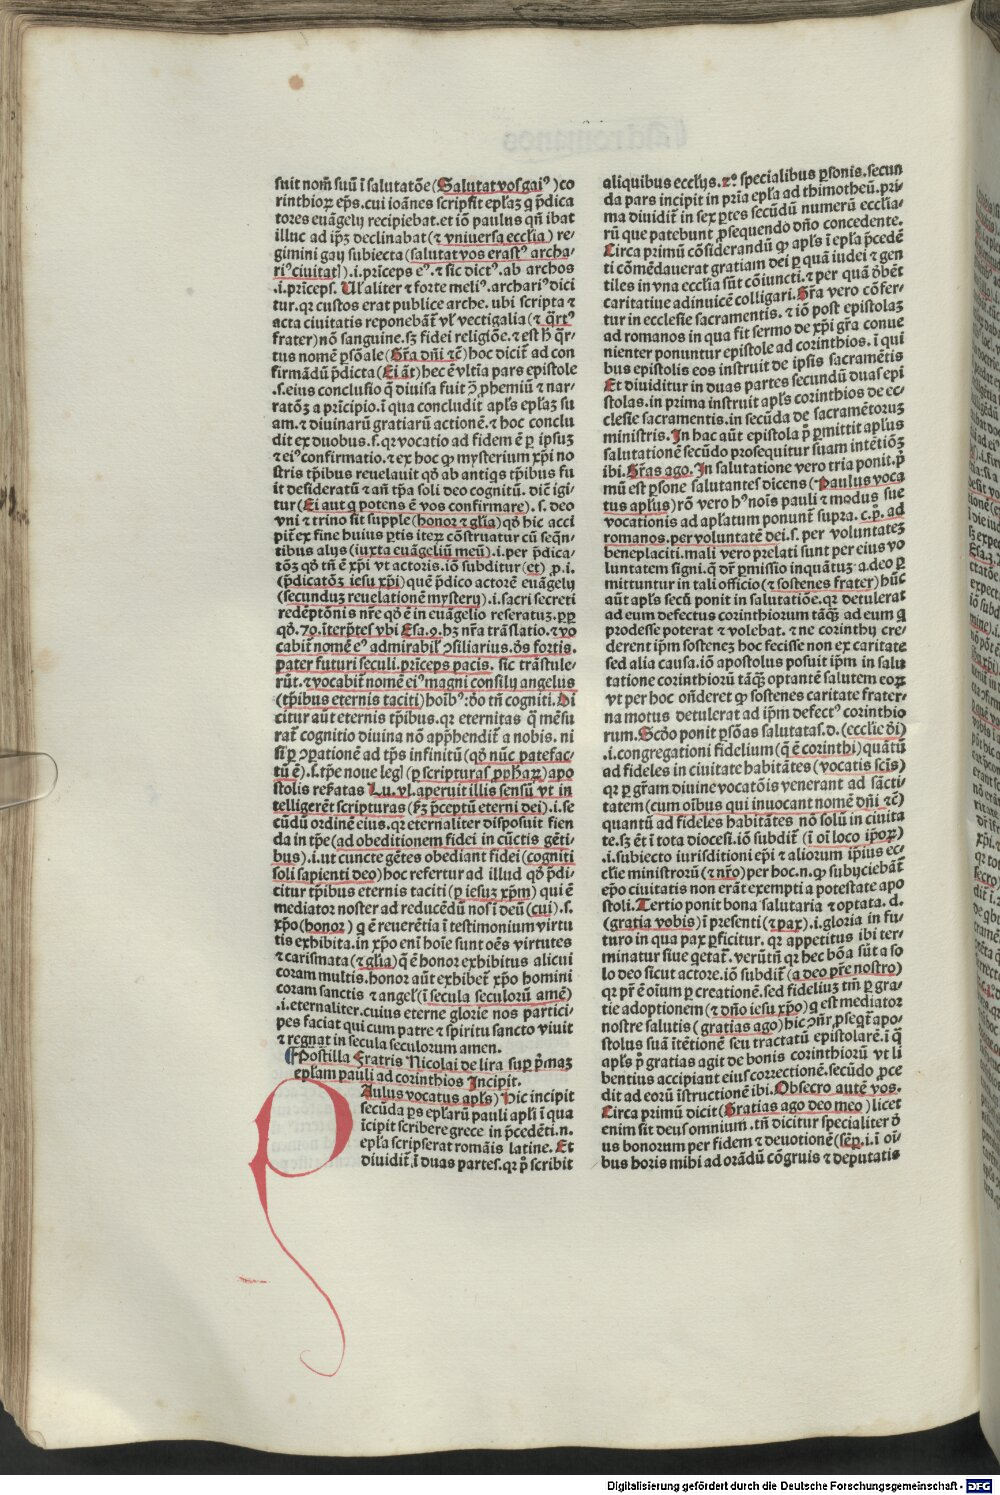 suit nom̄ suū ī salutatōe (Salutat vos gaiꝰ) co
rinthioꝝ ep̄s. cui ioānes scripsit ep̄laꝫ q p̄dica
tores euāgelij recipiebat. et iō paulus qn̄ ibat
illuc ad ip̄ꝫ declinabat (⁊ vniuersa eccl̄ia) re-
gimini gaij subiecta (salutat vos erastꝰ archa-
riꝰ ciuitaṭ). i. prīceps eꝰ. ⁊ sic dictꝰ. ab archos
.i. prīceps. Ul̓ aliter ⁊ forte meliꝰ. archariꝰ dici
tur. qꝛ custos erat publice arche. vbi scripta ⁊
acta ciuitatis reponebāt̄ vl̓ vectigalia (⁊ q̄rtꝰ
frater) nō sanguine. sꝫ fidei religiōe. ⁊ est h̄ q̄r-
tus nomē ꝑsōale (Gr̄a dn̄i ⁊c̄) hoc dicit̄ ad con
firmādū p̄dicta (Ei āt) hec ē vl̄tīa pars epistole
.s. eius conclusio q̄ diuisa fuit ꝯ ꝓhemiū ⁊ nar-
ratōꝫ a prīcipio. ī qua concludit apl̄s ep̄laꝫ su
am. ⁊ diuinarū gratiarū actionē. ⁊ hoc conclu
dit ex duobus. s. qꝛ vocatio ad fidem ē ꝑ ipsuꝫ
⁊ eiꝰ confirmatio. ⁊ ex hoc ꝙ mysterium xp̄i no
stris tp̄ibus reuelauit qd̓ ab antiqs tp̄ibus fu
it desideratū ⁊ an̄ tp̄a soli deo cognitū. dic̄ igi
tur (Ei aut q potens ē vos confirmare). s. deo
vni ⁊ trino sit supple (honor ⁊ gl̄ia) qd̓ hic acci
pit̄ ex fine huius ꝑtis iteꝝ cōstruatur cū seq̄n-
tibus alijs (iuxta euāgeliū meū). i. per p̄dica-
tōꝫ qd̓ tn̄ ē xp̄i vt actoris. iō subditur (et) ꝓ. i.
(p̄dicatōꝫ iesu xp̄i) quē p̄dico actorē euāgelij
(secunduꝫ reuelationē mysterij). i. sacri secreti
redēptōnis nr̄e qd̓ ē in euāgelio reseratuꝫ. ꝓp
qd̓. 70. īterp̄tes vbi Esa. 9. hꝫ nr̄a trāslatio. ⁊ vo
cabit̄ nomē eꝰ admirabil̓ ꝯsiliarius. de̓s fortis.
pater futuri seculi. prīceps pacis. sic trāstule-
rūt. ⁊ vocabit̄ nomē eiꝰ magni consilij angelus
(tp̄ibus eternis taciti) hoīb̓ꝰ: de̓o tn̄ cogniti. Di
citur aūt eternis tp̄ibus. qꝛ eternitas q̄ mēsu
rat̄ cognitio diuina nō app̄hendit̄ a nobis. ni
si ꝑ ꝯꝑationē ad tp̄s infinitū (qd̓ nūc patefac-
tū ē). s. tp̄e noue leg̣ (ꝑ scripturas ꝓpħaꝝ) apo
stolis reseatas Lu. vl. aperuit illis sensū vt in
telligerēt scripturas (ẜꝫ p̄ceptū eterni dei). i. se
cūdū ordinē eius. qꝛ eternaliter disposuit fien
da in tp̄e (ad obeditionem fidei in cūctis gēti-
bus). i. ut cuncte gētes obediant fidei (cogniti
soli sapienti deo) hoc refertur ad illud qd̓ p̄di-
citur tp̄ibus eternis taciti (ꝑ iesuꝫ xp̄m) qui ē
mediator noster ad reducēdū nos ī deū (cui). s.
xp̄o (honor) q ē reuerētia ī testimonium virtu
tis exhibita. in xp̄o enī hoīe sunt oēs virtutes
⁊ carismata (⁊ gl̄ia) q̄ ē honor exhibitus alicui
coram multis. honor aūt exhibet̄ xp̄o homini
coram sanctis ⁊ angel̓ (ī secula seculorū amē)
.i. eternaliter. cuius eterne glorie nos partici-
pes faciat qui cum patre ⁊ spiritu sancto viuit
⁊ regnat in secula seculorum amen.
Postilla Fratris Nicolai de lira sup p̄maꝫ
ep̄lam pauli ad corinthios Incipit.
PAulus vocatus apl̄s) Hic incipit
secūda ꝑs ep̄larū pauli apl̄i ī qua
īcipit scribere grece in p̄cedēti. n.
ep̄la scripserat romāis latine. Et
diuidit̄ ī duas partes. qꝛ p̄ scribit
aliquibus eccl̄ijs. 2º specialibus ꝑsonis. secun
da pars incipit in pria ep̄la ad thimotheū. pri-
ma diuidit̄ in sex ꝑtes secūdū numerū eccl̄ia-
rū que patebunt ꝓsequendo dn̄o concedente.
Circa primū cōsiderandū ꝙ apl̄s ī ep̄la p̄cedē
ti cōmēdauerat gratiam dei ꝑ quā iudei ⁊ gen
tiles in vna eccl̄ia sūt cōiuncti. ⁊ per quā de̓bēt
caritatiue adinuicē colligari. Gr̄a vero cōfer-
tur in ecclesie sacramentis. ⁊ iō post epistolaꝫ
ad romanos in qua fit sermo de xp̄i gr̄a conue
nienter ponuntur epistole ad corinthios. ī qui
bus epistolis eos instruit de ipsis sacramētis
Et diuiditur in duas partes secundū duas epi
stolas. in prima instruit apl̄s corinthios de ec-
clesie sacramentis. in secūda de sacramētoruꝫ
ministris. In hac aūt epistola p̄ p̄mittit apl̄us
salutationē secūdo prosequitur suam intētiōꝫ
ibi. Gr̄as ago. In salutatione vero tria ponit. p̄
mū est ꝑsone salutantes dicens (Paulus voca
tus apl̄us) rō vero hꝰ noīs pauli ⁊ modus sue
vocationis ad apl̄atum ponunt̄ supra. c. p̄. ad
romanos. per voluntatē dei. s. per voluntateꝫ
beneplaciti. mali vero prelati sunt per eius vo
luntatem signi. q̄ dr̄ ꝑmissio inquātuꝫ a deo ꝑ
mittuntur in tali officio (⁊ sostenes frater) hūc
aūt apl̄s secū ponit in salutatiōe. qꝛ detulerat
ad eum defectus corinthiorum tāqꝫ ad eum q
prodesse poterat ⁊ volebat. ⁊ ne corinthij cre-
derent ip̄m sosteneꝫ hoc fecisse non ex caritate
sed alia causa. iō apostolus posuit ip̄m in salu
tatione corinthiorū tāqꝫ optantē salutem eoꝝ
vt per hoc on̄deret ꝙ sostenes caritate frater-
na motus detulerat ad ip̄m defectꝰ corinthio
rum. Scd̓o ponit ꝑsōas salutatas. d. (ecclie de̓i)
.i. congregationi fidelium (q̄ ē corinthi) quātū
ad fideles in ciuitate habitātes (vocatis scīs)
qꝛ ꝑ gr̄am diuine vocatōis venerant ad sācti-
tatem (cum oībus qui inuocant nomē dn̄i ⁊c̄)
quantū ad fideles habitātes nō solū in ciuita
te. sꝫ ēt ī tota diocesi. iō subdit̄ (ī oī loco ip̄oꝝ)
.i. subiecto iurisditioni ep̄i ⁊ aliorum ip̄ius ec-
cl̄ie ministrorū (⁊ nr̄o) per hoc. n. ꝙ subijciebāt̄
ep̄o ciuitatis non erāt exempti a potestate apo
stoli. Tertio ponit bona salutaria ⁊ optata. d.
(gratia vobis) ī presenti (⁊ pax). i. gloria in fu-
turo in qua pax ꝑficitur. qꝛ appetitus ibi ter-
minatur siue q̇etat̄. verūtn̄ qꝛ hec bōa sūt a so
lo deo sicut actore. iō subdit̄ (a deo pr̄e nostro)
qꝛ pr̄ ē oīum ꝑ creationē. sed fideliuꝫ tm̄ ꝑ gra-
tie adoptionem (⁊ dn̄o iesu xp̄o) q est mediator
nostre salutis (gratias ago) hic ꝯn̄r ꝓseqt̄ apo-
stolus suā ītētionē seu tractatū epistolarē. ī q̄
apl̄s p̄ gratias agit de bonis corinthiorū vt li
bentius accipiant eius correctionē. secūdo ꝓce
dit ad eorū īstructionē ibi. Obsecro autē vos.
Circa primū dicit (Gratias ago deo meo) licet
enim sit deus omnium. tn̄ dicitur specialiter de̓
us bonorum per fidem ⁊ deuotionē (sēꝑ. i. ī oī
bus horis mihi ad orādū cōgruis ⁊ deputatis
Digitalisierung gefördert durch die Deutsche Forschungsgemeinschaft - DFG